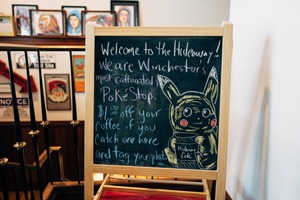 Welcome to the Hideaway!
We are Winchester's
most caffeinated
PokéStop.
$1.00 off your
coffee if you
catch one here
and tag your photo
Hideaway
Café
NOTICE